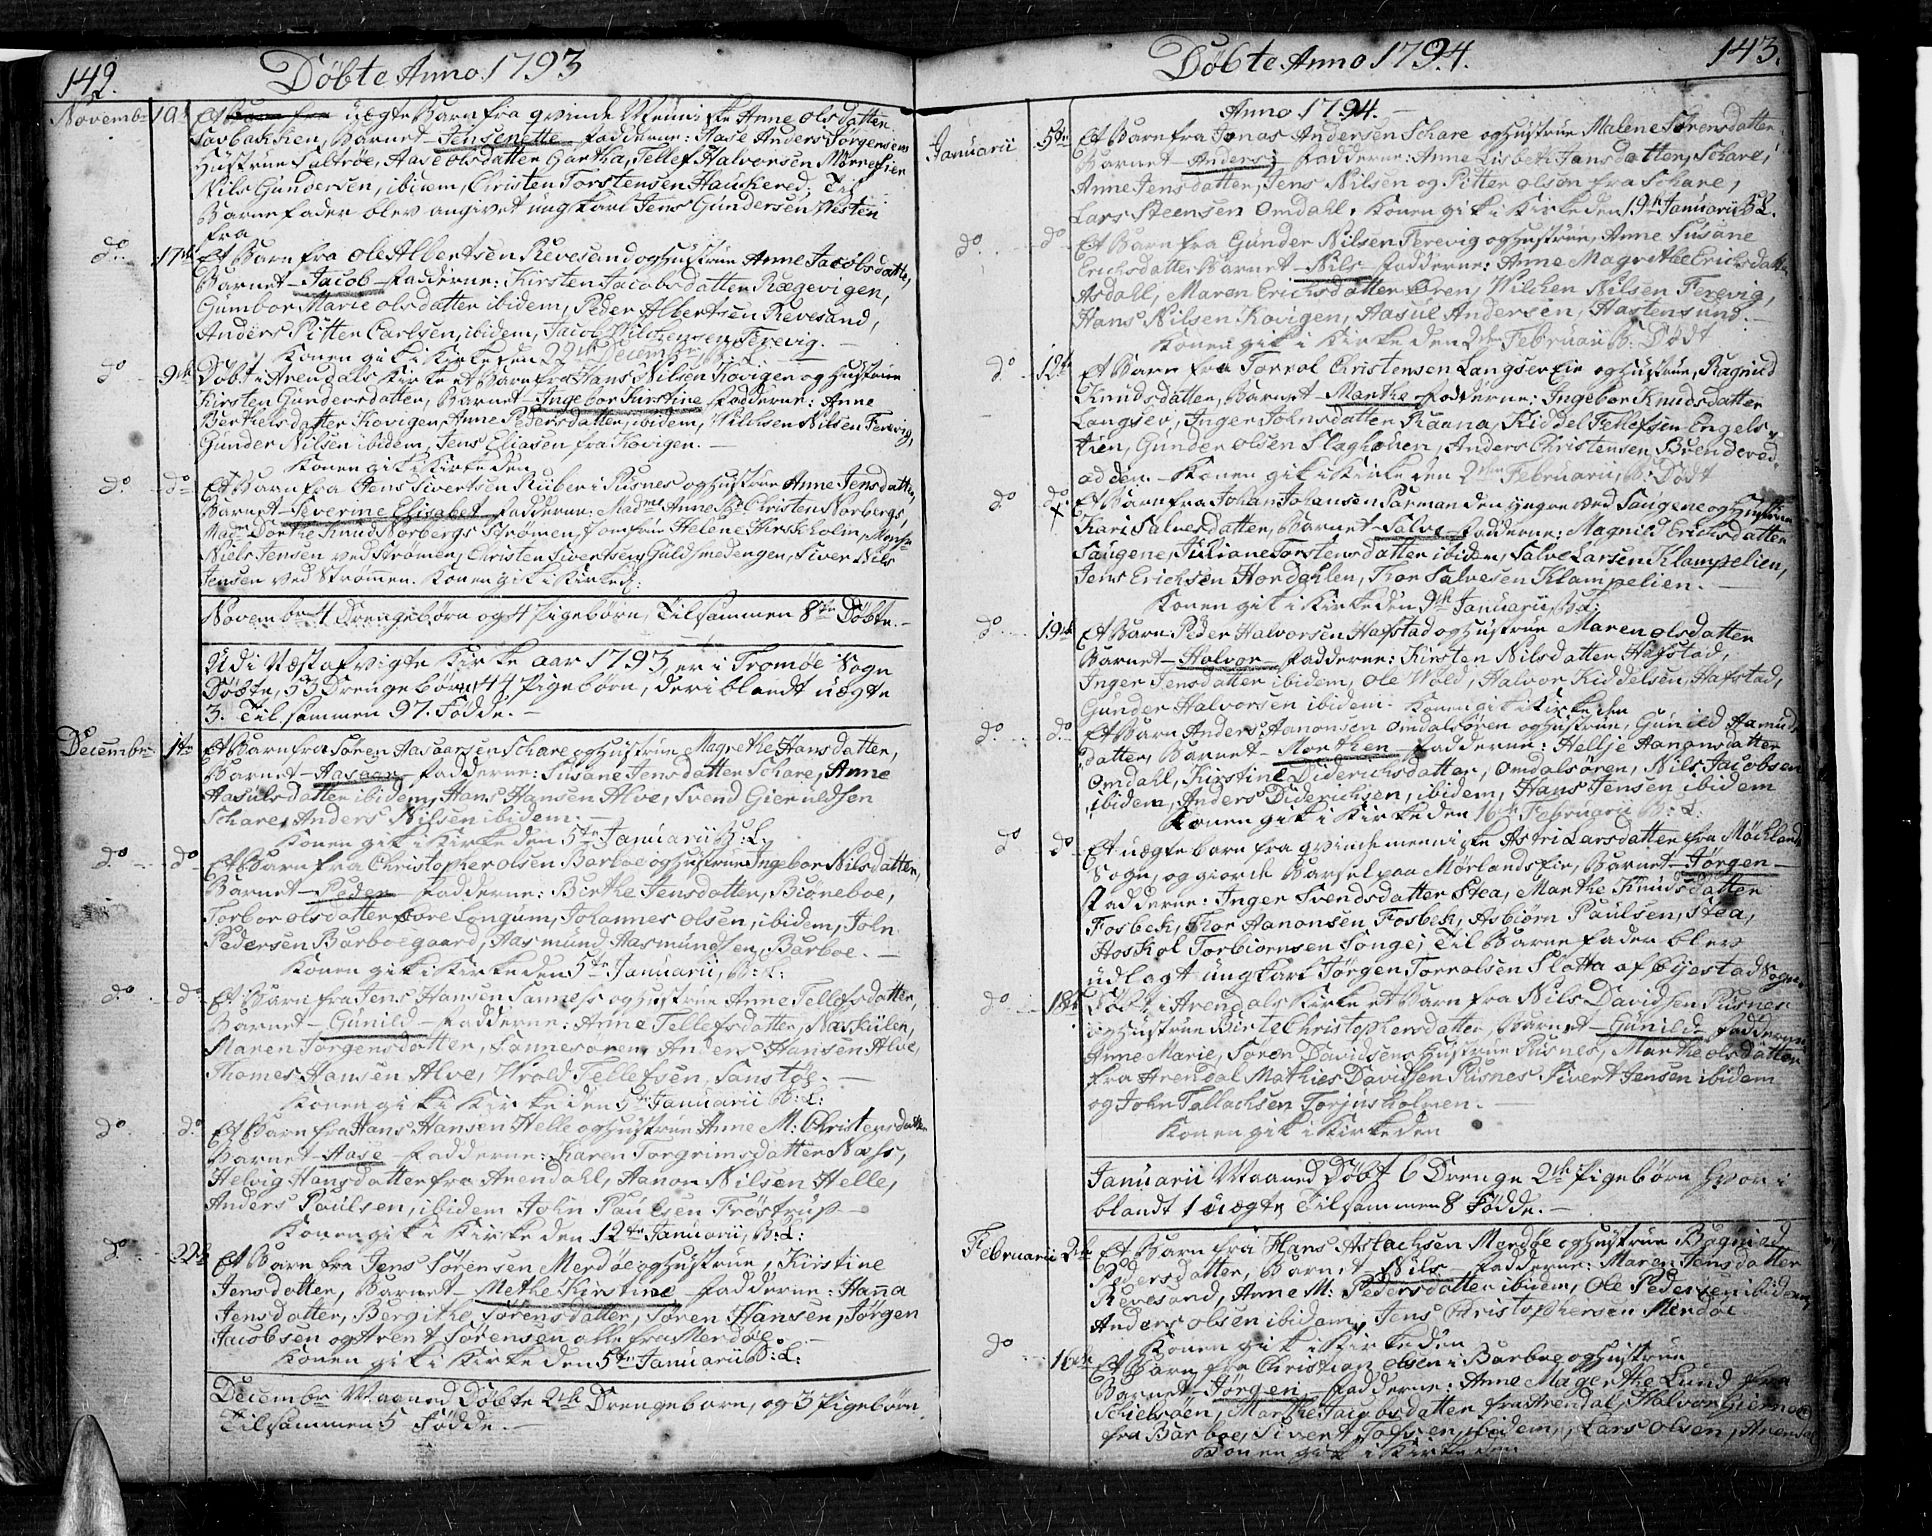 142. Döbte Anno 1793
Novembr 10d Et Barn fra uægte Barn fra qvinde Menniske Anne olsdatter
Barnet Jensenette fadderne: Aase Anders Jörgensens
Hustrue Saltröe, Aase olsdatter Gartha, Tellef Halvorsen
Nils Gundersen, ibidem, Christen Torstensen Hauskered; Til
Barnefader blev angivet ungkarl Jens Gundersen Westen
fra
do 17de Et Barn fra Ole Albertsen Revesand og hustrue Anne Jacobsdatter,
Barnet Jacob fadderne: Kirsten Jacobsdatter Rægevigen,
Gumbor Marie olsdatter ibidem, Peder Albertsen Revesand,
Anders Pitter Carlsen, ibidem, Jacob Wilchensen, Ferevig. —
Konen gik i Kirke den 22de Decembr, B: L:
do 9de Döbt i Arendals Kirke et Barn fra Hans Nilsen Kovigen og hustrue
Kirsten Gundersdatter, Barnet Ingebor Kirstine fadderne: Anne
Berthelsdatter Kovigen, Anne Pedersdatter, ibidem, Wilchen Nilsen Ferevig,
Gunder Nilsen ibidem, Jens Eliasen fra Kovigen. —
Konen gik i Kirke den
do do Et Barn fra Jens Sivertsen Ruber i Pusnes og hustrue Anne Jensdatter,
Barnet Severine Elisabet fadderne: Madme Anne Christen Norbergs,
Mad: Dorthe Knud Norbergs Strömen, Jomfru Helene Hirschholm, Monsr
Niels Jensen ved Strömen, Christen Sivertsen, Guldsmedengen, Siver Nils
Jensen ved Strömmen. Konen gik i Kirke d:
Novembr 4 Drengebörn og 4 Pigebörn, Tilsammen 8te Döbte. —
Udi Næstafvigte Kirke aar 1793 er i Tromöe Sogn
Döbte, 53 Drengebörn, 44 Pigebörn, deriblandt uægte
3. Tilsammen 97. Födde. —
Decembr 1te Et Barn fra Sören Aasaarsen Schare og hustrue Magrethe Hansdatter,
Barnet Aasaar fadderne: Susane Jensdatter Schare, Anne
Aasulsdatter ibidem, Hans Hansen Alve, Svend Gieruldsen
Schare, Anders Nilsen ibidem. —
Konen gik i Kirke den 5te Januarii B: L:
do do Et Barn fra Christopher olsen Barboe og hustrue Ingebor Nilsdatter,
Barnet Peder fadderne: Birthe Jensdatter, Biöneboe,
Torbor olsdatter fore Longum, Johannes olsen, ibidem, John
Pedersen Barboegaard, Aasmund Aasmundsen, Barboe. —
Konen gik i Kirke den 5te Januarii, B: L:
do do Et Barn fra Jens Hansen Sanness og hustrue Anne Tellefsdatter,
Barnet Gunild fadderne: Anne Tellefsdatter, Naskilen,
Maren Jörgensdatter, Sannesoren, Anders Hansen Alve,
Thomes Hansen Alve, Wrold Tellefsen, Sanstöe. —
Konen gik i Kirke den 5te Januarii B: L:
do do Et Barn fra Hans Hansen Helle og hustrue Anne M: Christensdatter
Barnet Aase fadderne: Karen Torgrimsdatter Næss,
Helvig Hansdatter fra Arendahl, Aanon Nilsen Helle,
Anders Poulsen, ibidem John Poulsen Fröstrup —
Konen gik i Kirke den 12te Januarii, B: L:
do 22de Et Barn fra Jens Sörensen Merdöe og hustrue, Kirstine
Jensdatter, Barnet Methe Kirstine fadderne: Hanna
Jensdatter, Bergithe Sörensdatter, Sören Hansen, Jörgen
Jacobsen og Arent Sörensen alle fra Merdöe. —
Konen gik i Kirke den 5te Januarii B: L:
Decembr Maaned Döbte 2de Drengebörn, og 3 Pigebörn
Tilsammen 5 Födde. —
Döbte Anno 1794. 143.
Anno 1794. —
Januarii 5te Et Barn fra Jonas Andersen Schare og hustrue Malene Sörensdatter
Barnet Anders; fadderne: Anne Lisbeth Jansdatter, Schare,
Anne Jensdatter, Jens Nilsen og Pitter olsen fra Schare,
Lars Steensen Omdahl, Konen gik i Kirke den 19de Januarii B: L.
do do Et Barn fra Gunder Nilsen Ferevig og hustrue, Anne Susane
Erichsdatter Barnet Nils fadderne: Anne Magrethe Erichsdatter
Asdahl, Maren Erichsdatter Ören, Wilchen Nilsen Ferevig,
Hans Nilsen Kovigen, Aasul Andersen, Hastensund. —
Konen gik i Kirke den 2den Februarii B: Dödt
do 12te Et Barn fra Torrol Christensen Langsev Eie og hustrue, Ragnild
Knudsdatter, Barnet Marthe fadderne: Ingebor Knudsdatter
Langsev, Inger Johnsdatter Rauna, Kiddel Tellefsen Engels-
tien, Gunder olsen Slaghöuen, Anders Christensen, Brenderöd
adden. Konen gik i Kirke den 2den Februarii, B: Dödt
do do Et Barn fra Johan Johansen Parman den yngre ved Saugene og hustrue
Kari Salvesdatter, Barnet Salve fadderne: Magnild Erichsdatter
Saugene, Juliane Torstensdatter ibidem, Salve Larsen Klampelien,
Jens Erichsen Hordahlen, Thor Salvesen Klampelien. —
Konen gik i Kirke den 9de Januarii, B: L:
do 19de Et Barn Peder Halvorsen Hafstad og hustrue Maren olsdatter
Barnet Halvor fadderne: Kirsten Nilsdatter Hafstad,
Inger Jensdatter ibidem, Ole Wold, Halvor Kiddelsen Hafstad,
Gunder Halvorsen ibidem. Konen gik i Kirke den
do do Et Barn Anders Aanonsen Omdalsören og hustrue, Gunild Aamunds
datter, Barnet Morthen fadderne: Hellje Aanonsdatter
Omdahl, Kirstine Diderichsdatter, Omdalsören, Nils Jacobsen
ibidem, Anders Diderichsen, ibidem, Hans Jensen ibidem
Konen gik i Kirke den 16de Februarii B: L:
do do Et uægte barn fra qvindemenniske Astri Larsdatter fra Möcklands
Sogn, og giorde Barsel paa Mörlands eie, Barnet Jörgen —
fadderne: Inger Svendsdatter Stea, Marthe Knudsdatter
Fosbek, Thor Aanonsen Fosbek, Asbiörn Paulsen, Stea,
Hoskol Torbiörnsen Songe; Til Barnefader blev
udlagt ungkarl Jörgen Torrolsen Slotta af Öyestad Sogn.
do 18de Döbt i Arendals Kirke et Barn fra Nils Davidsen Pusnes
og hustrue Birte Christophersdatter, Barnet Gunild fadderne
Anne Marie, Sören Davidsens hustrue Pusnes, Marthe olsdatter
fra Arendal Mathies Davidsen Pusnes Sivert Jensen ibidem
og John Tallachsen Torjusholmen. —
Konen gik i Kirke den
Januarii Maaned Döbt 6 Drenge 2de Pigebörn hvori
blandt 1 uægte, Tilsammen 8 Födde. —
Februarii 2de Et Barn fra Hans Aslachsen Merdöe og hustrue Ragnild
Pedersdatter, Barnet Nils fadderne: Maren Jensdatter
Revesand, Anne M: Pedersdatter ibidem, Ole Pedersen ibidem,
Anders olsen ibidem, Jens Christophersen Merdöe
Konen gik i Kirke den
do 16de Et Barn fra Christian olsen i Barboe og hustrue
Barnet Jörgen fadderne: Anne Magrethe Lund fra
Schielsöen, Marthe Jacobsdatter fra Arendal, Halvor
fra Barboe, Sivert ibidem, Lars olsen, Arendal
Konen gik i Kirke den